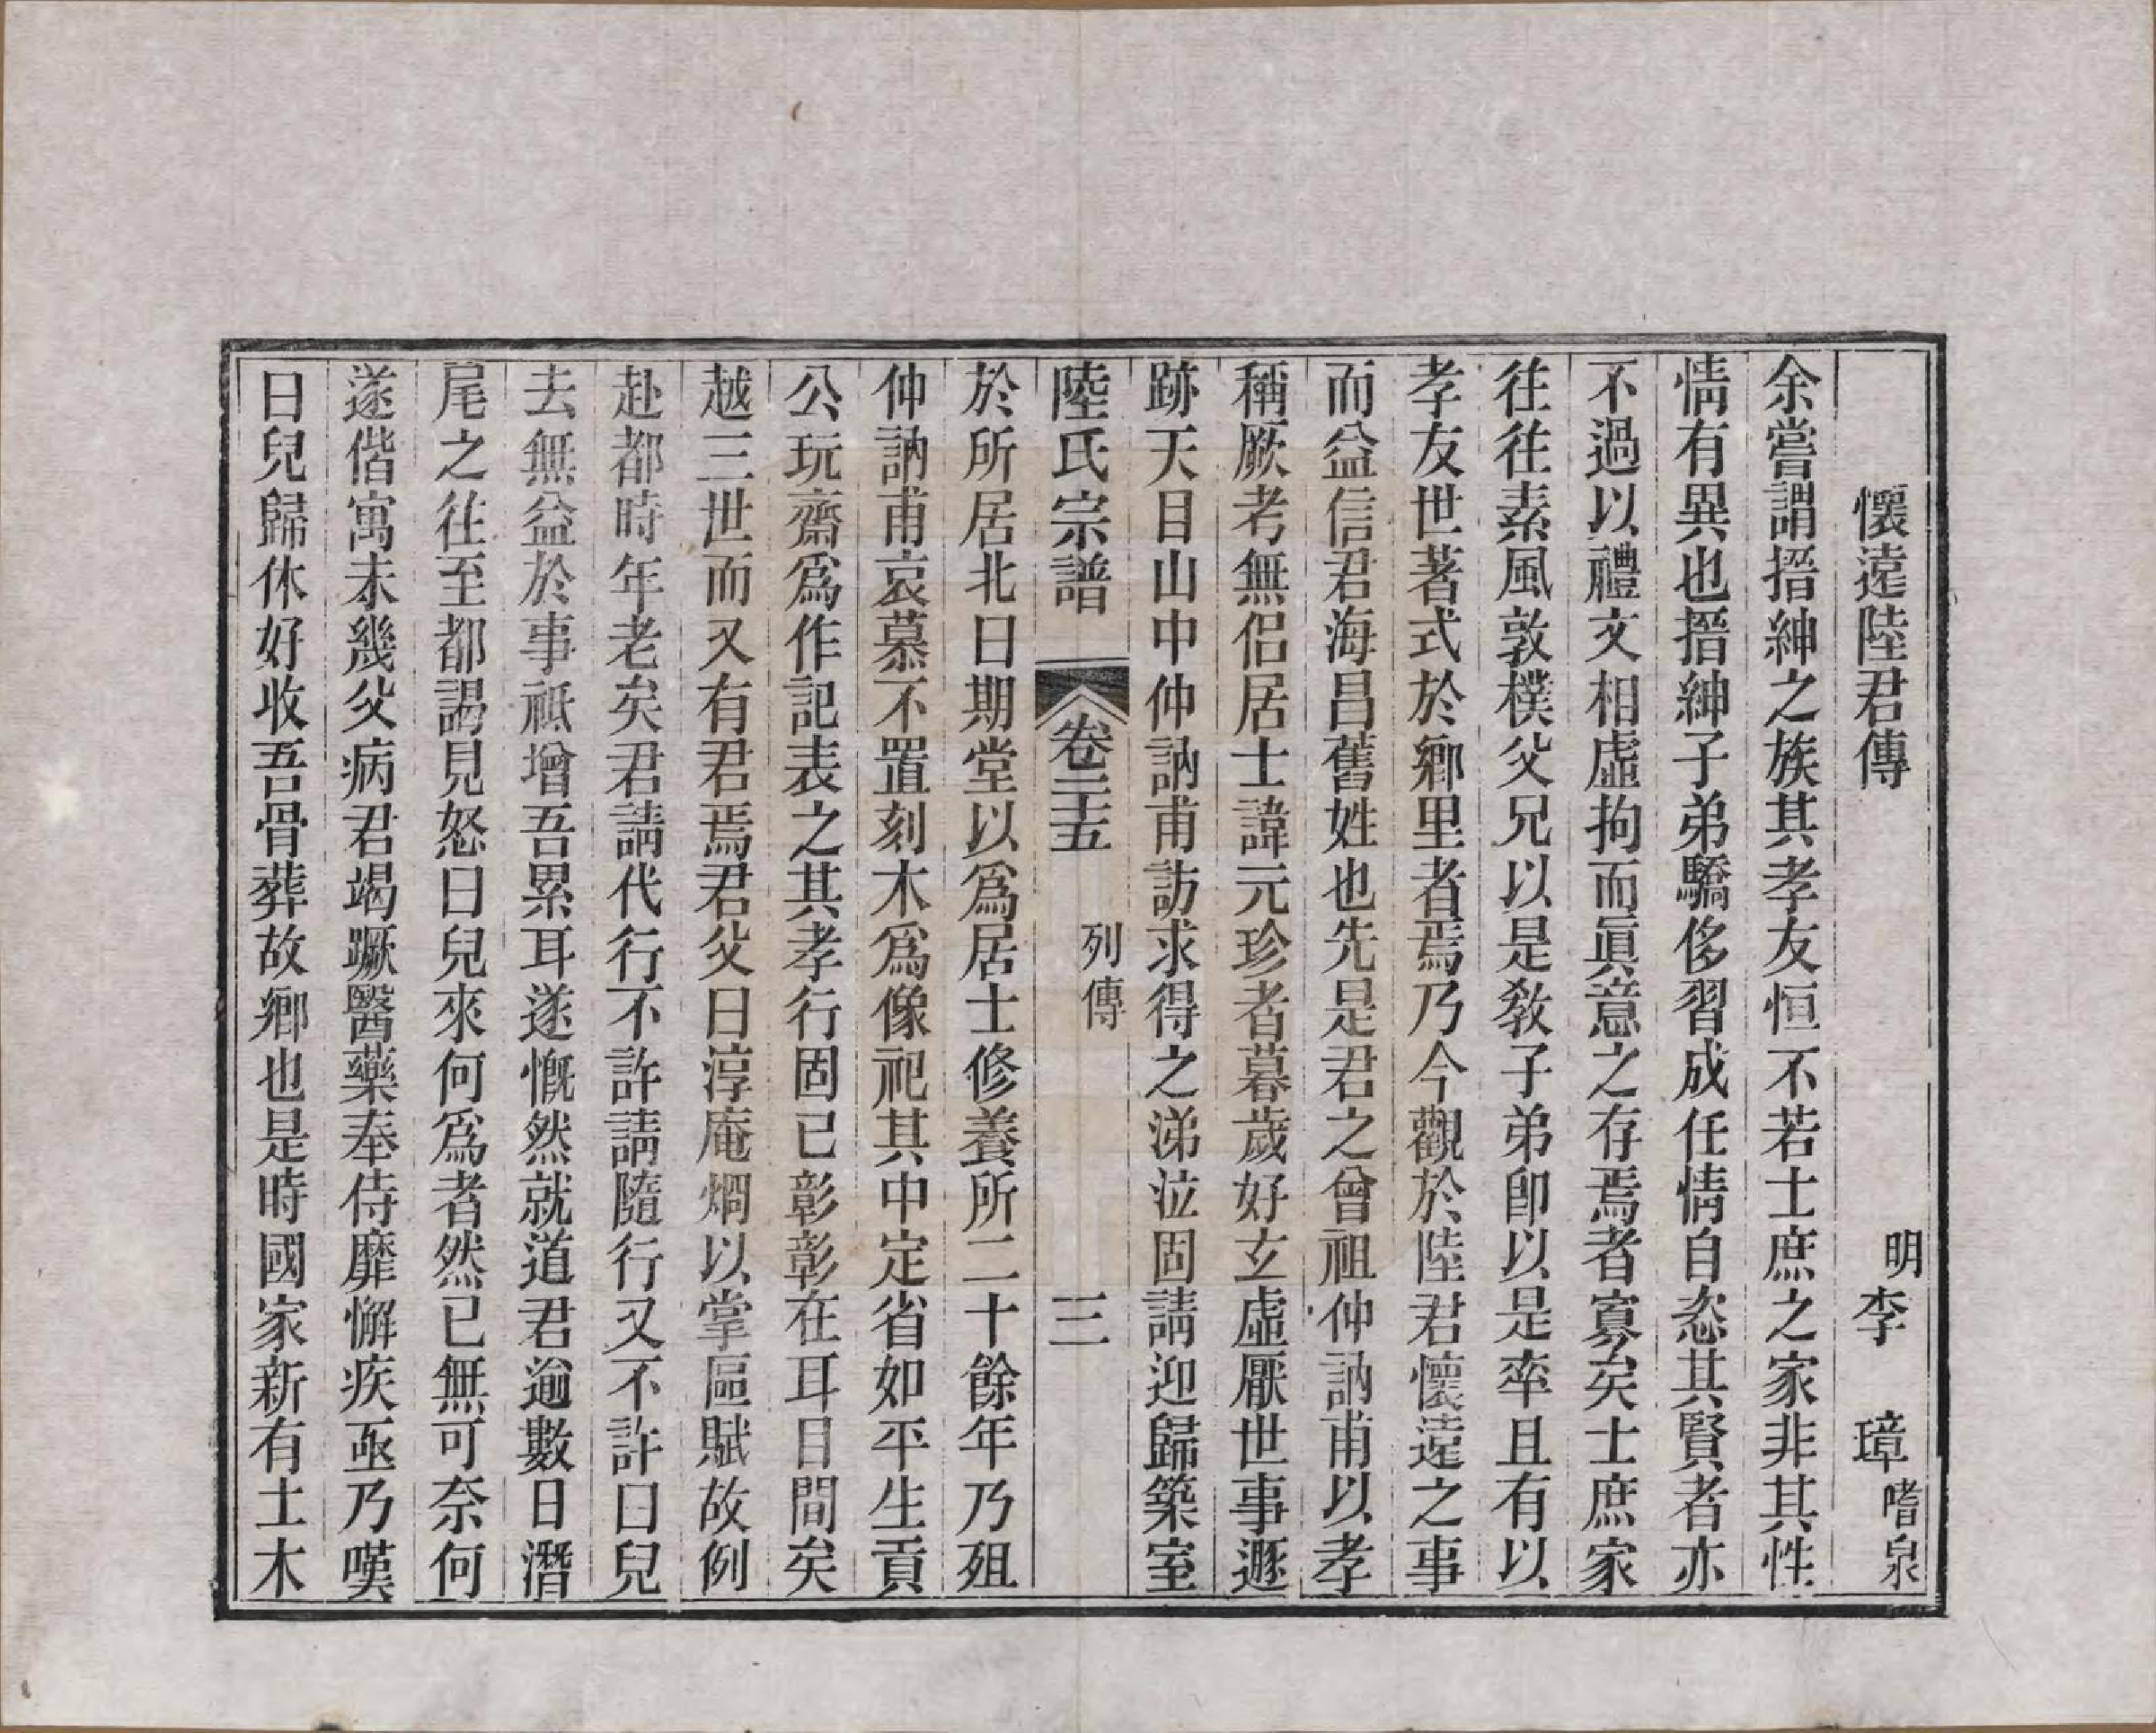 懷遠陸君傳　明李　璋嗜泉
余嘗謂搢紳之族其孝友恒不若士庶之家非其性
情有異也搢紳子弟驕侈習成任情自恣其賢者亦
不過以禮文相虛拘而眞意之存焉者寡矣士庶家
往往素風敦樸父兄以是敎子弟卽以是率且有以
孝友世著式於鄉里者焉乃今觀於陸君懷遠之事
而益信君海昌舊姓也先是君之曾祖仲訥甫以孝
稱厥考無侶居士諱元珍者暮歲好玄虛厭世事遯
跡天目山中仲訥甫訪求得之涕泣固請迎歸築室
陸氏宗譜　卷二十五　列傳　三
於所居北日期堂以爲居士修養所二十餘年乃殂
仲訥甫哀慕不置刻木爲像祀其中定省如平生貢
公玩齋爲作記表之其孝行固已彰彰在耳目間矣
越三世而又有君焉君父曰淳庵烱以掌區賦故例
赴都時年老矣君請代行不許請隨行又不許曰兒
去無益於事祇增吾累耳遂慨然就道君逾數日潛
尾之往至都謁見怒曰兒來何爲者然已無可奈何
遂偕寓未幾父病君竭蹶醫藥奉侍靡懈疾亟乃嘆
曰兒歸休好收吾骨葬故鄉也是時國家新有土木